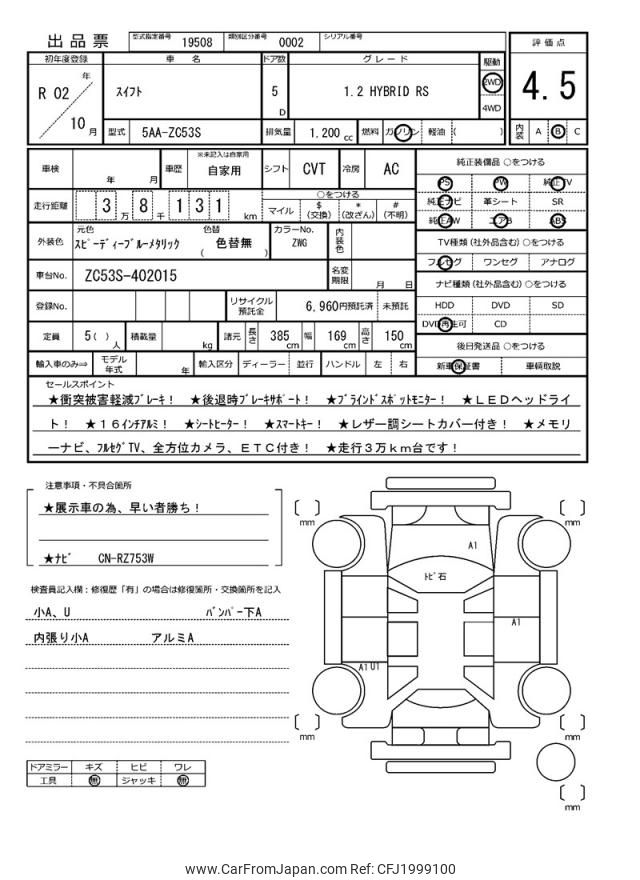 出品票
型式指定番号 19508 類別区分番号 0002 シリアル番号
評価点
初年度登録 車名 ドア数 グレード 駆動
R 02 年 10 月
スイフト 5 D 1.2 HYBRID RS 2WD 4WD
4.5
型式 5AA-ZC53S 排気量 1,200 cc 燃料 ガソリン 軽油 ( )
内装 A B C
車検 年 月 車歴 ※未記入は自家用 自家用 シフト CVT 冷房 AC
純正装備品 ○をつける
PS PW 純正TV
走行距離 3 万 8 千 1 3 1 km
○をつける
マイル $(交換) *(改ざん) #(不明)
純正ナビ 革シート SR
純正AW エアB ABS
外装色 元色 スピーディーブルーメタリック 色替 ( 色替無 ) カラーNo. ZWG 内装色
TV種類 (社外品含む) ○をつける
フルセグ ワンセグ アナログ
車台No. ZC53S-402015 名変期限 月 日
ナビ種類 (社外品含む) ○をつける
登録No. リサイクル預託金 6,960円預託済 未預託
HDD DVD SD
DVD再生可 CD
定員 5( )人 積載量 kg 諸元 長さ 385cm 幅 169cm 高さ 150cm
後日発送品 ○をつける
輸入車のみ⇒ モデル年式 年 輸入区分 ディーラー 並行 ハンドル 左 右
新車保証書 車輌取説
セールスポイント
★衝突被害軽減ブレーキ! ★後退時ブレーキサポート! ★ブラインドスポットモニター! ★LEDヘッドライ
ト! ★16インチアルミ! ★シートヒーター! ★スマートキー! ★レザー調シートカバー付き! ★メモリ
ーナビ、フルセグTV、全方位カメラ、ETC付き! ★走行3万km台です!
注意事項・不具合箇所
★展示車の為、早い者勝ち!
★ナビ CN-RZ753W
検査員記入欄:修復歴「有」の場合は修復箇所・交換箇所を記入
小A、U バンパー下A
内張り小A アルミA
mm
mm
A1
トビ石
A1
A1 U1
mm
mm
mm
ドアミラー キズ ヒビ ワレ
工具 無 ジャッキ 無
www.CarFromJapan.com Ref: CFJ1999100